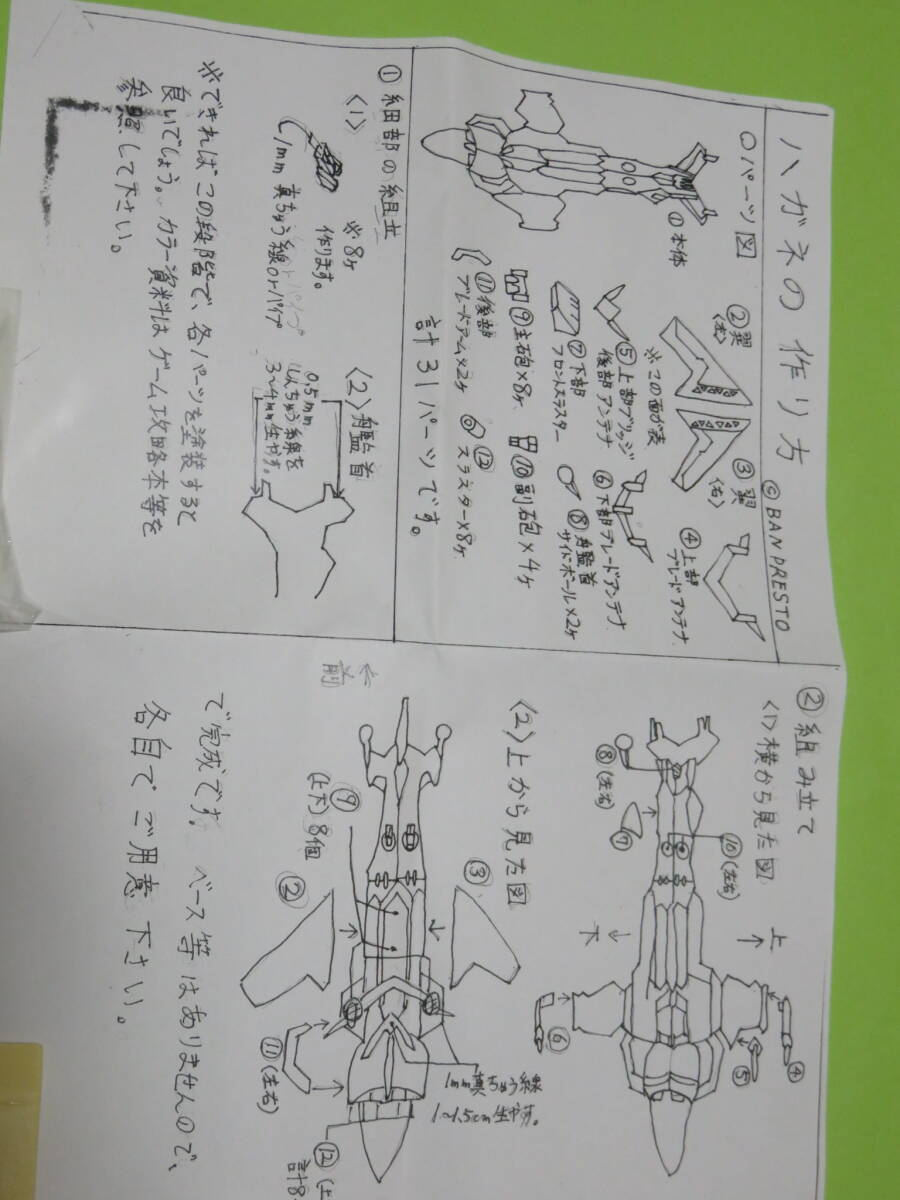 ハガネの作り方
©BANPRESTO
○パーツ図
①本体
②翼
〈左〉
③翼
〈右〉
④上部
ブレードアンテナ
※この面が表
⑤上部ブリッジ
後部アンテナ
⑥下部ブレードアンテナ
⑦下部
フロントスラスター
⑧艦首
サイドボール×2ヶ
⑨主砲×8ヶ
⑩副砲×4ヶ
⑪後部
ブレードアーム×2ヶ
⑫
スラスター×8ヶ
計31パーツです。
①細部の組立
〈1〉
※8ヶ
作ります。
1mm真ちゅう線orパイプ
〈2〉艦首
0.5mm
しんちゅう線を
3〜4mm生やす。
※できればこの段階で、各パーツを塗装すると
良いでしょう。カラー資料はゲーム攻略本等を
参照して下さい。
②組み立て
〈1〉横から見た図
上
下
④
⑤
⑥
⑦
⑧(左右)
⑩(左右)
〈2〉上から見た図
前
③
②
⑨
(上下)8個
⑪(左右)
1mm真ちゅう線
1〜1.5cm生やす。
⑫(上
計8
で完成です。ベース等はありませんので、
各自でご用意下さい。